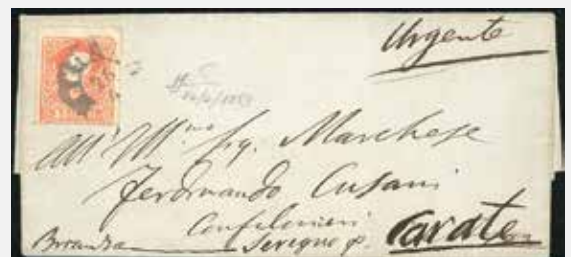 Urgente
14/4/1859
All' Ill.mo Sig. Marchese
Ferdinando Cusani
Confalonieri
Brianza Seregno p. Carate